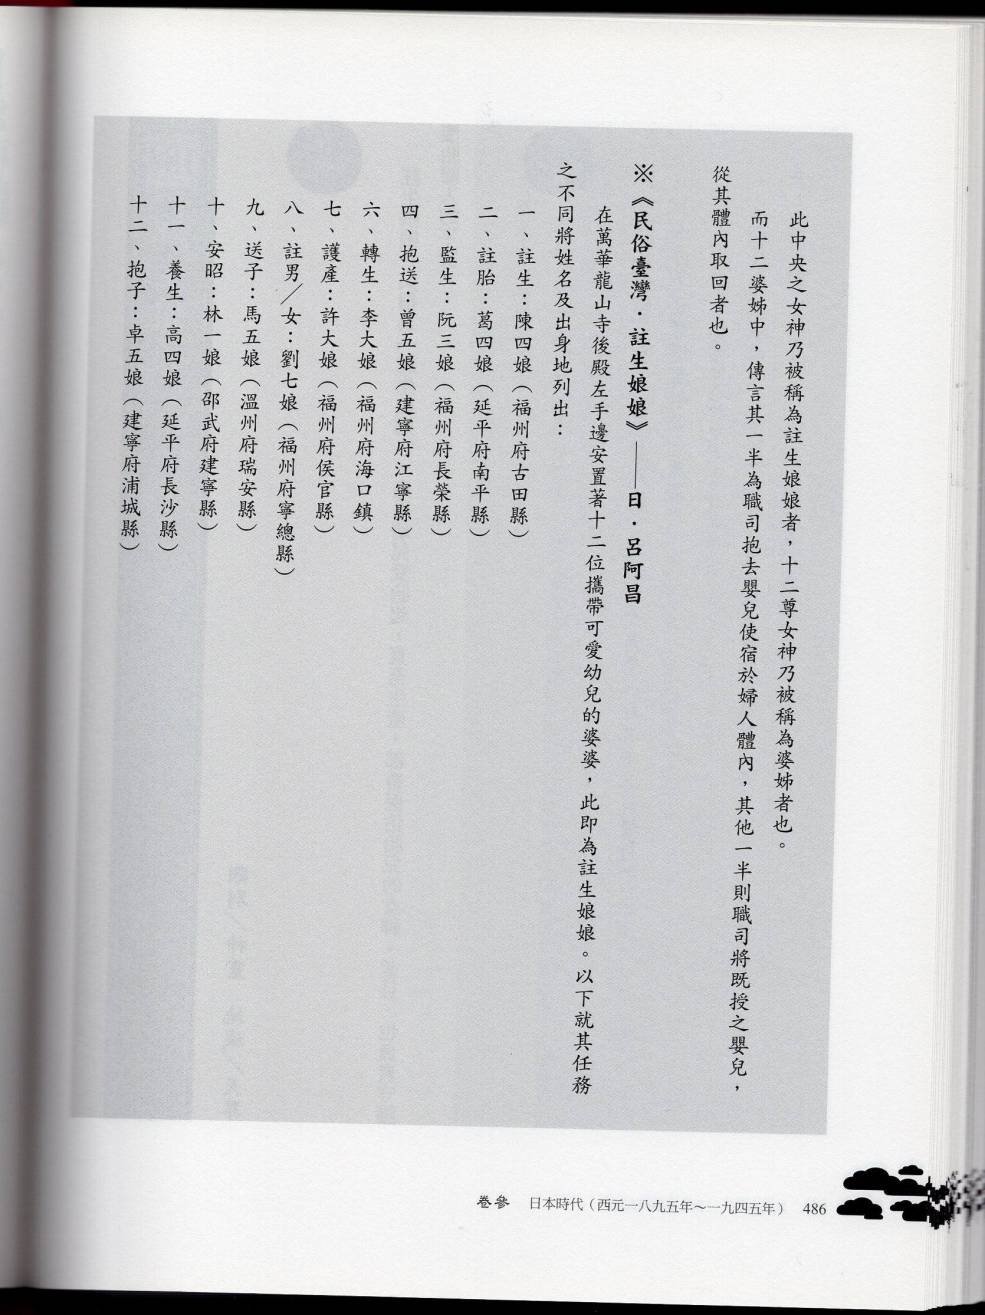 此中央之女神乃被稱為註生娘娘者，十二尊女神乃被稱為婆姊者也。
而十二婆姊中，傳言其一半為職司抱去嬰兒使宿於婦人體內，其他一半則職司將既授之嬰兒，
從其體內取回者也。
※《民俗臺灣．註生娘娘》——日．呂阿昌
在萬華龍山寺後殿左手邊安置著十二位攜帶可愛幼兒的婆婆，此即為註生娘娘。以下就其任務
之不同將姓名及出身地列出：
一、註生：陳四娘（福州府古田縣）
二、註胎：葛四娘（延平府南平縣）
三、監生：阮三娘（福州府長榮縣）
四、抱送：曾五娘（建寧府江寧縣）
六、轉生：李大娘（福州府海口鎮）
七、護產：許大娘（福州府侯官縣）
八、註男／女：劉七娘（福州府寧總縣）
九、送子：馬五娘（溫州府瑞安縣）
十、安昭：林一娘（邵武府建寧縣）
十一、養生：高四娘（延平府長沙縣）
十二、抱子：卓五娘（建寧府浦城縣）
卷參 日本時代（西元一八九五年～一九四五年） 486